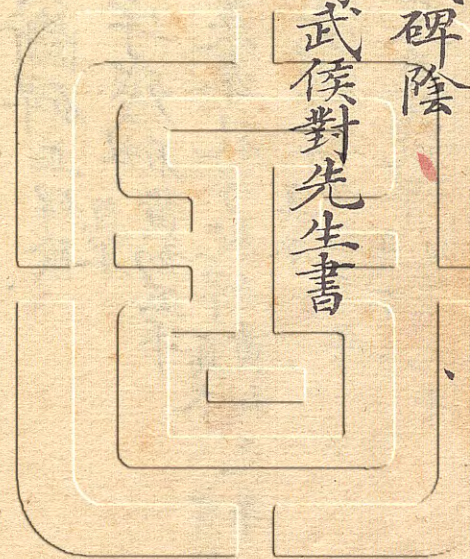 碑陰
武侯對先生書